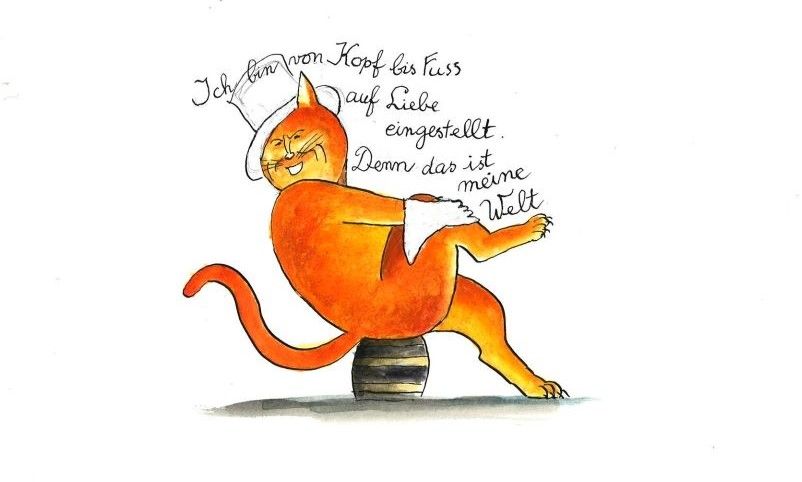 Ich bin von Kopf bis Fuss
auf Liebe
eingestellt.
Denn das ist
meine
Welt